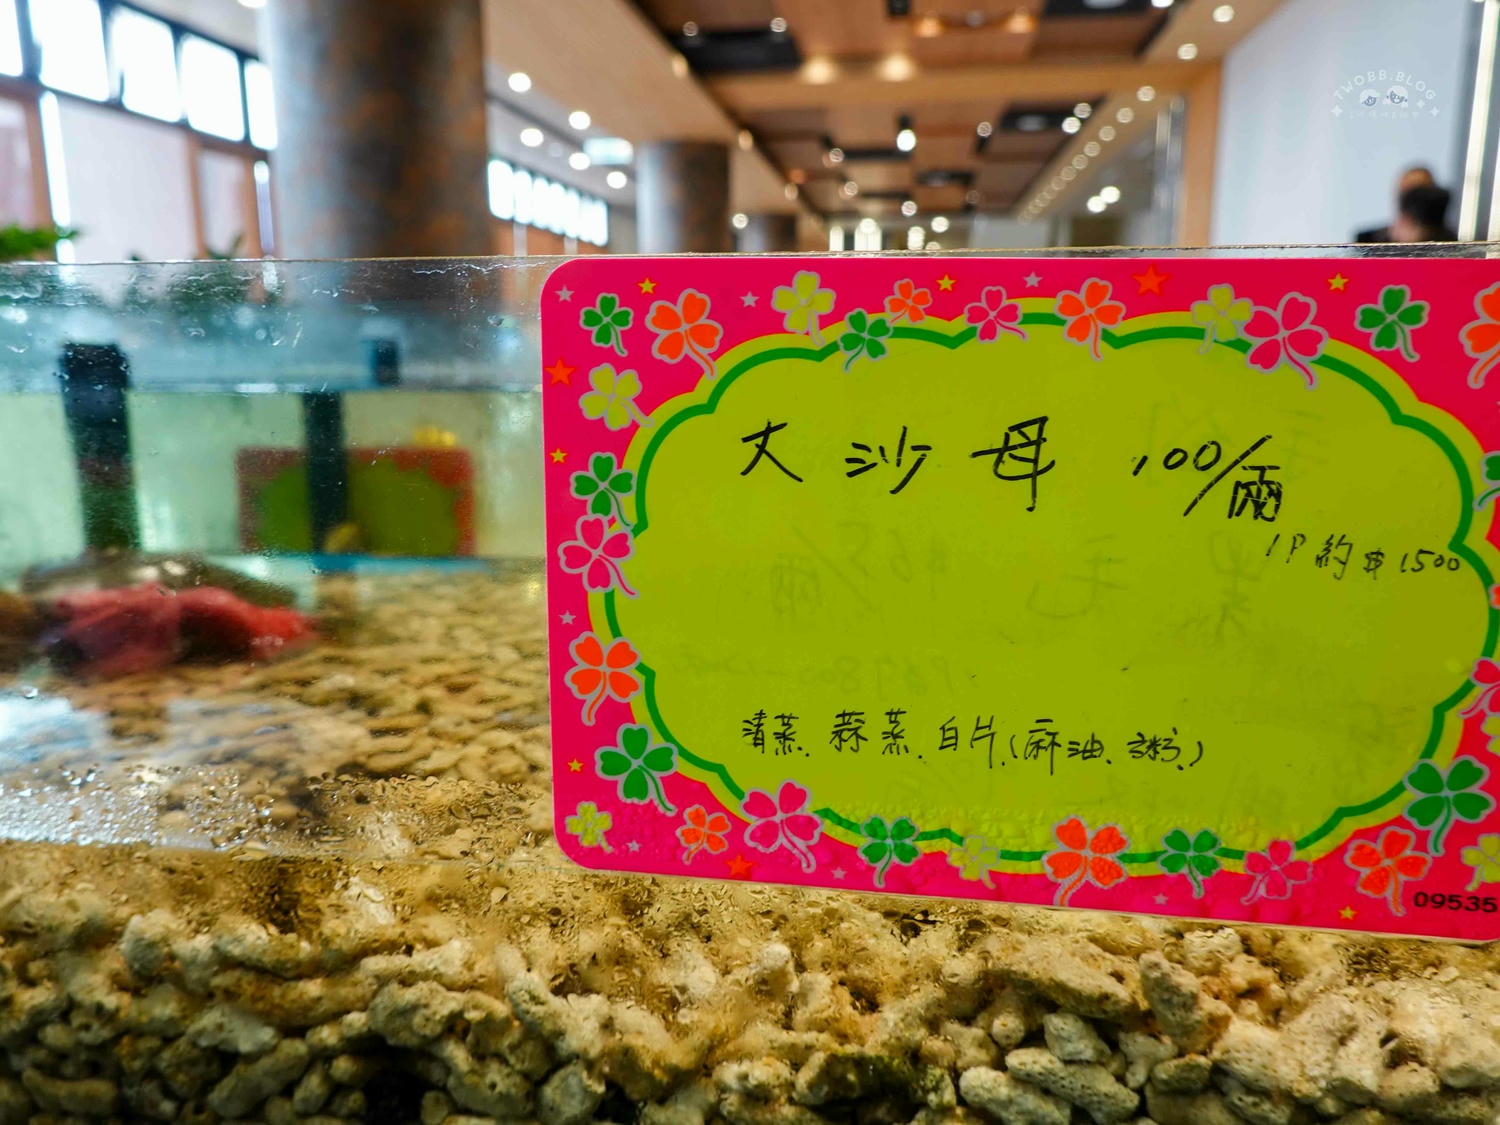 TWOBB.BLOG
大 沙 母 100/兩
1P 約 $1500
清蒸、蒜蒸、白片、(麻油、粥、)
09535